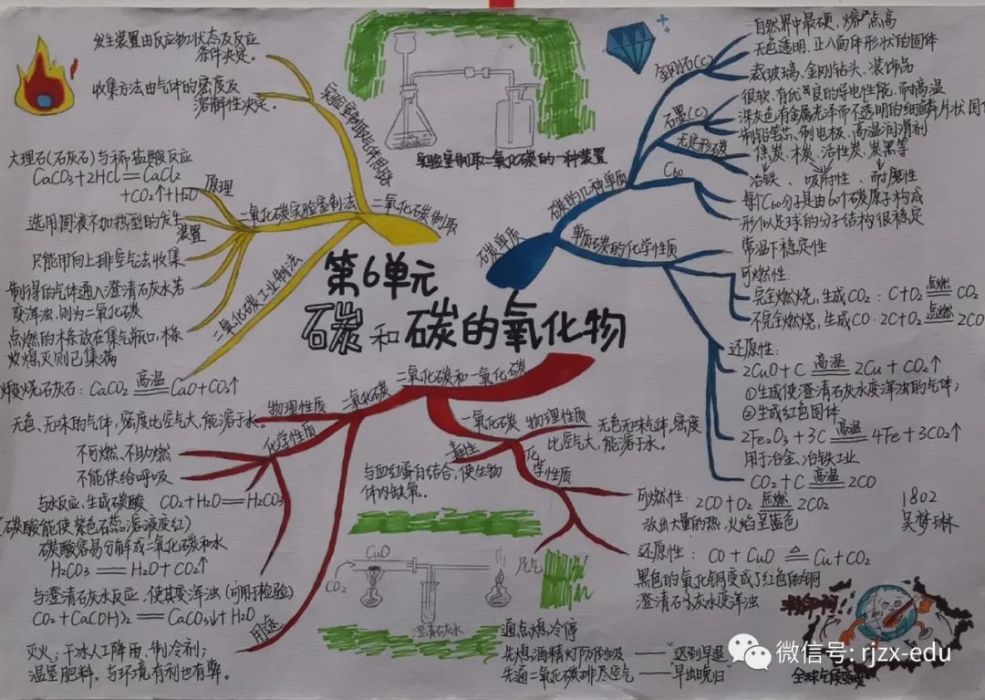 发生装置由反应物状态及反应
条件决定。
收集方法由气体的密度及
溶解性决定。
大理石(石灰石)与稀盐酸反应
CaCO₃+2HCl=CaCl₂
+CO₂↑+H₂O
原理
选用固液不加热型的发生
装置
只能用向上排空气法收集
制得的气体通入澄清石灰水若
变浑浊,则为二氧化碳
点燃的木条放在集气瓶口,木条
火熄灭则已集满
煅烧石灰石: CaCO₂ 高温 CaO+CO₂↑
二氧化碳实验室制法
二氧化碳工业制法
二氧化碳制取
实验室制取二氧化碳的一种装置
第6单元
石炭和碳的氧化物
碳单质
碳的几种单质
金刚石(C)
自然界中最硬,熔点高
无色透明,正八面体形状的固体
裁玻璃、金刚钻头、装饰品
石墨(C)
很软,有优良的导电性能,耐高温
深灰色有金属光泽而不透明的细鳞片状固体
制铅笔芯、制电极、高温润滑剂
无定形碳
焦炭、木炭、活性炭、炭黑等
冶铁、吸附性、耐磨性
C₆₀
每个C₆₀分子是由60个碳原子构成
形似足球的分子结构很稳定
单质碳的化学性质
常温下稳定性
可燃性:
完全燃烧,生成CO₂: C+O₂ 点燃 CO₂
不完全燃烧,生成CO: 2C+O₂ 点燃 2CO
还原性:
2CuO+C 高温 2Cu+CO₂↑
①生成使澄清石灰水变浑浊的气体;
②生成红色固体
2Fe₂O₃+3C 高温 4Fe+3CO₂↑
用于冶金、冶铁工业
CO₂+C 高温 2CO
二氧化碳和一氧化碳
二氧化碳
物理性质
无色、无味的气体,密度比空气大,能溶于水。
化学性质
不可燃、不助燃
不能供给呼吸
与水反应,生成碳酸 CO₂+H₂O=H₂CO₃
(碳酸能使紫色石蕊溶液变红)
碳酸容易分解成二氧化碳和水
H₂CO₃=H₂O+CO₂↑
与澄清石灰水反应,使其变浑浊(可用于检验)
CO₂+Ca(OH)₂=CaCO₃↓+H₂O
用途
灭火;干冰人工降雨、制冷剂;
温室肥料。与环境有利也有弊。
一氧化碳
物理性质
无色无味气体,密度
比空气大,能溶于水。
毒性
与血红蛋白结合,使生物
体内缺氧。
化学性质
可燃性: 2CO+O₂ 点燃 2CO₂
放出大量的热,火焰呈蓝色
还原性: CO+CuO △ Cu+CO₂
黑色的氧化铜变成了红色的铜
澄清石灰水变浑浊
1802
吴梦琳
CuO
CO₂
尾气
澄清石灰水
通点熄冷停
先熄酒精灯防倒吸——"迟到早退
先通二氧化碳排尽空气——"早出晚归
微信号: rjzx-edu